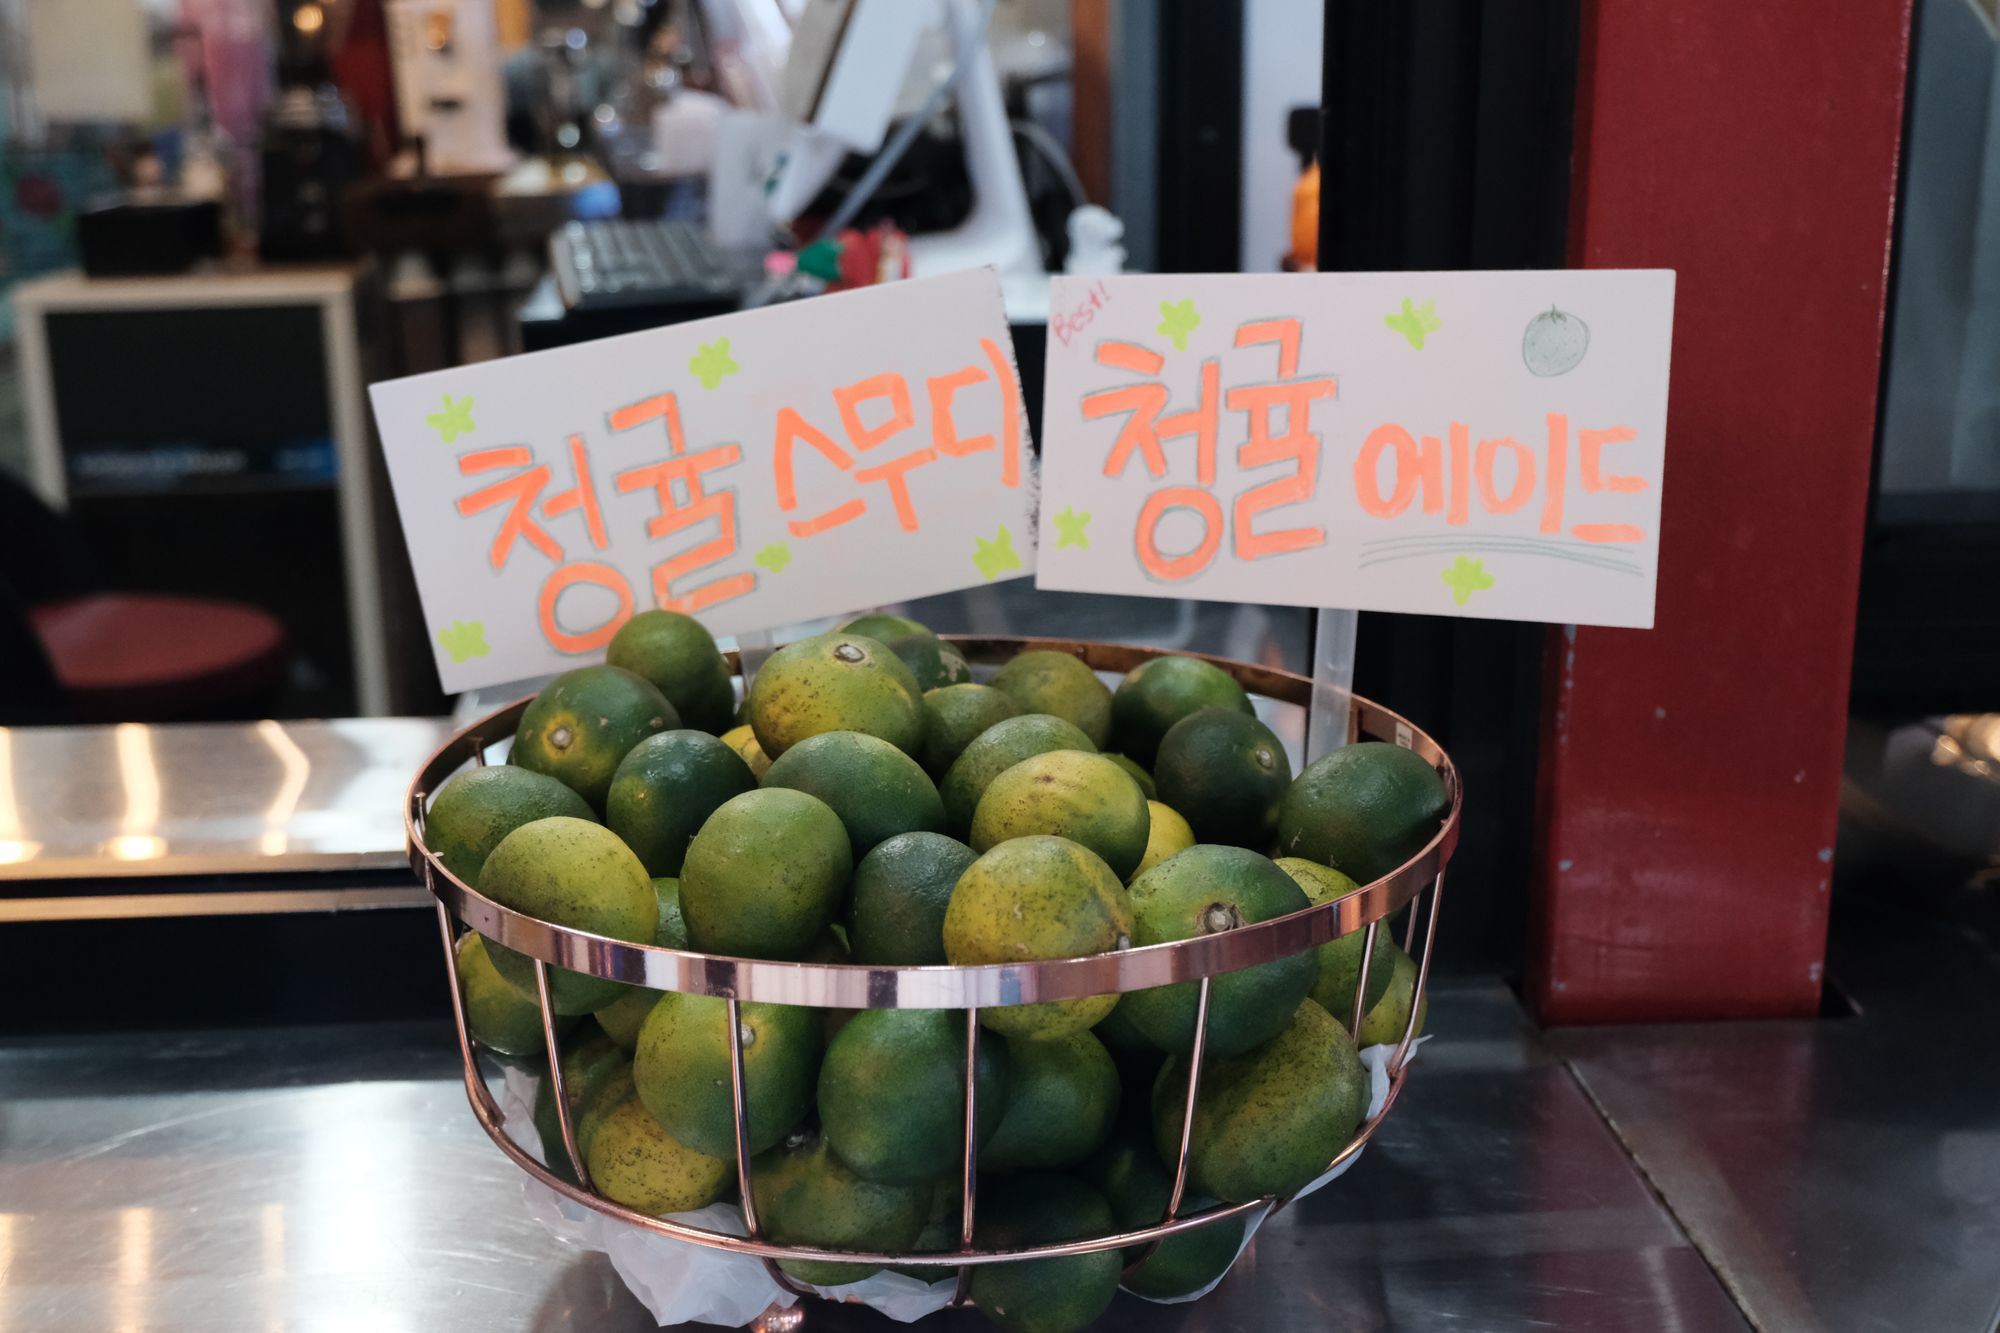 청귤 스무디
Best!
청귤 에이드